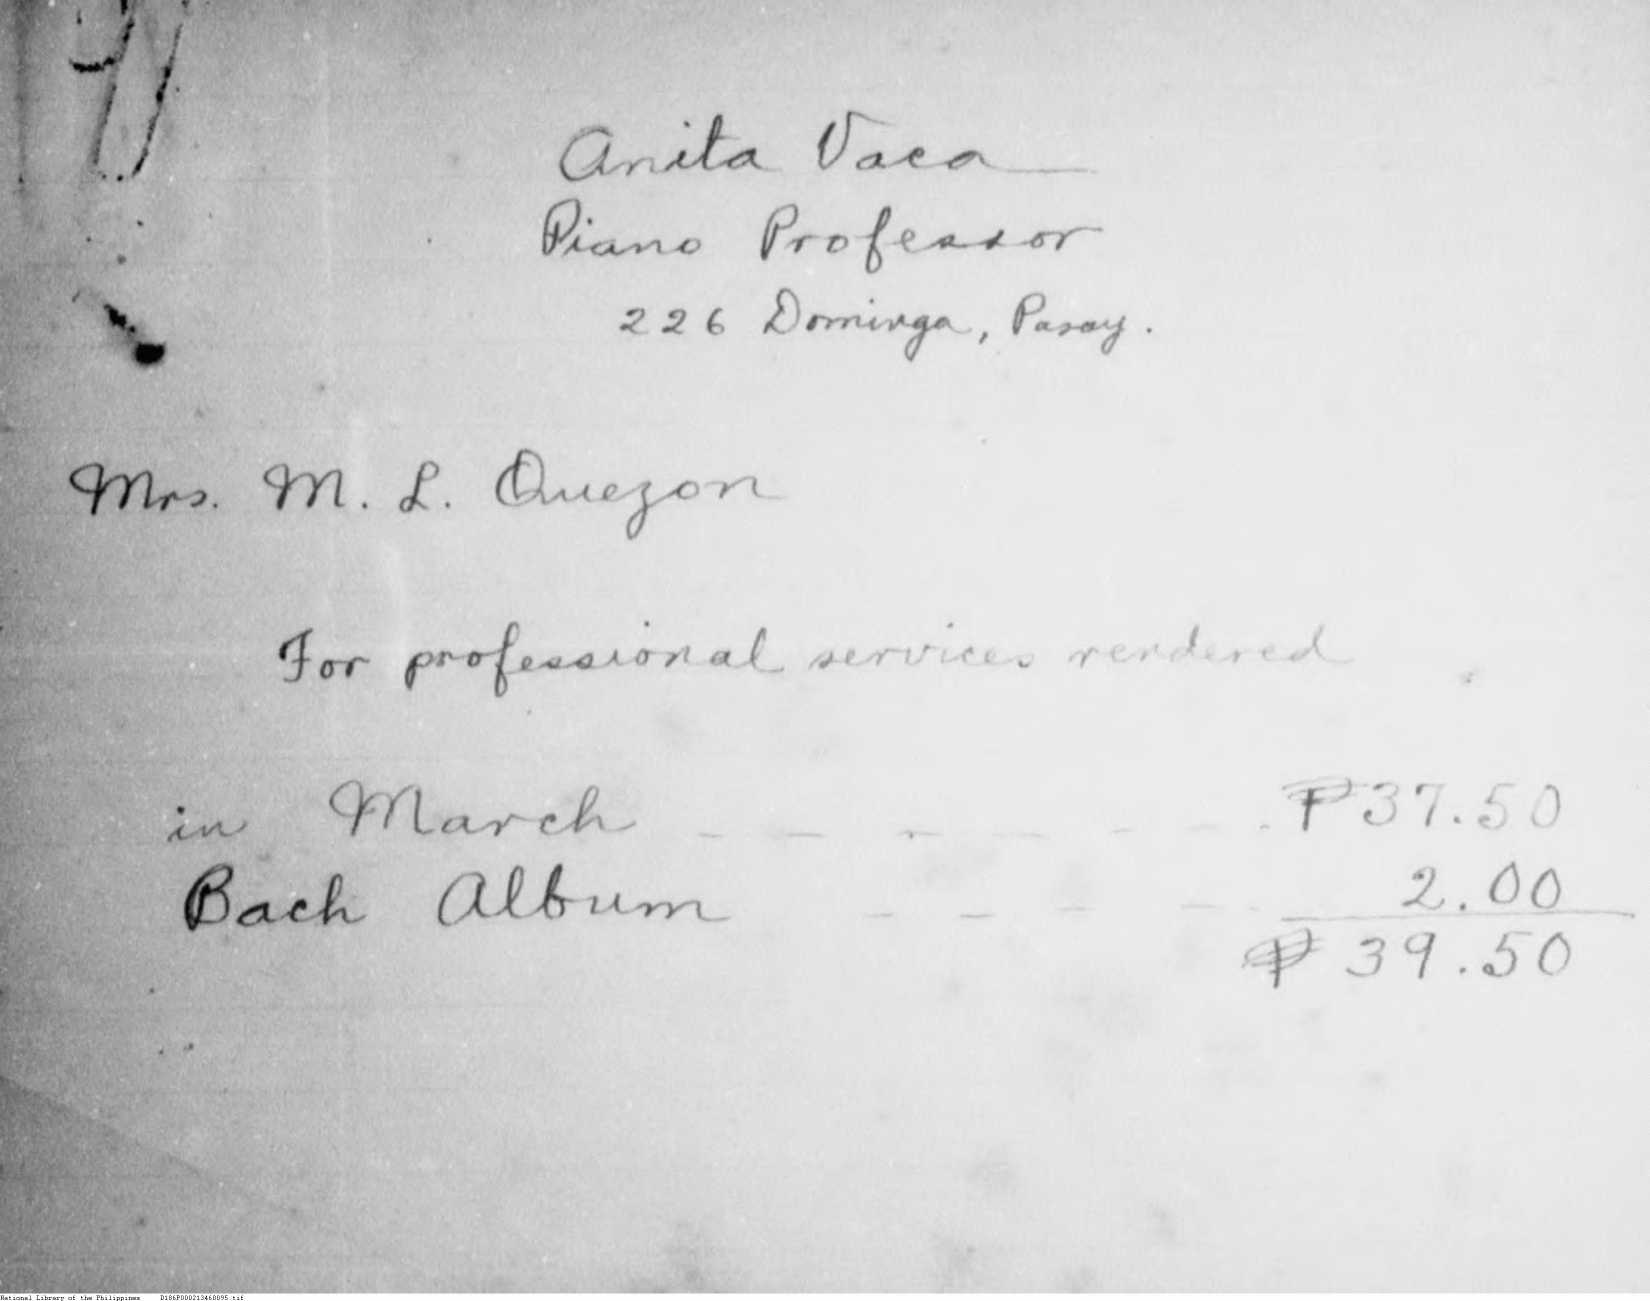 Anita Vaca
Piano Professor
226 Dominga, Pasay.
Mrs. M. L. Quezon
For professional services rendered
in March - - - - - - - ₱37.50
Bach Album - - - - - 2.00
₱ 39.50
National Library of the Philippines D186P000213460095.tif